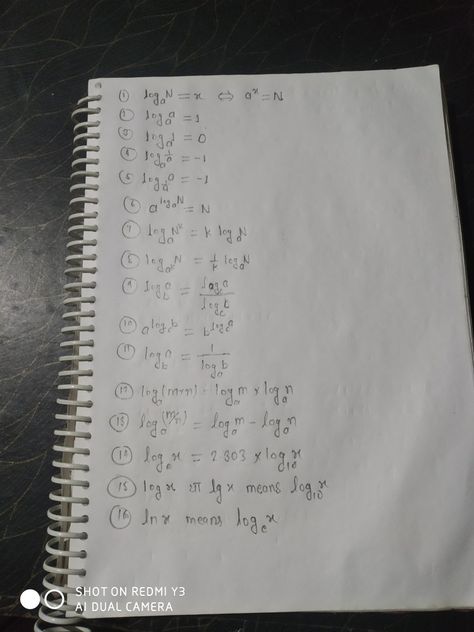 ① log_a N = x ⇔ a^x = N
② log_a a = 1
③ log_a 1 = 0
④ log_a 1/a = -1
⑤ log_1/a a = -1
⑥ a^log_a N = N
⑦ log_a N^k = k log_a N
⑧ log_a^k N = 1/k log_a N
⑨ log_b a = log_c a / log_c b
⑩ a^log_c b = b^log_c a
⑪ log_b a = 1 / log_a b
⑫ log_a (m×n) = log_a m × log_a n
⑬ log_a (m/n) = log_a m - log_a n
⑭ log_e x = 2.303 × log_10 x
⑮ log x या lg x means log_10 x
⑯ ln x means log_e x
SHOT ON REDMI Y3
AI DUAL CAMERA